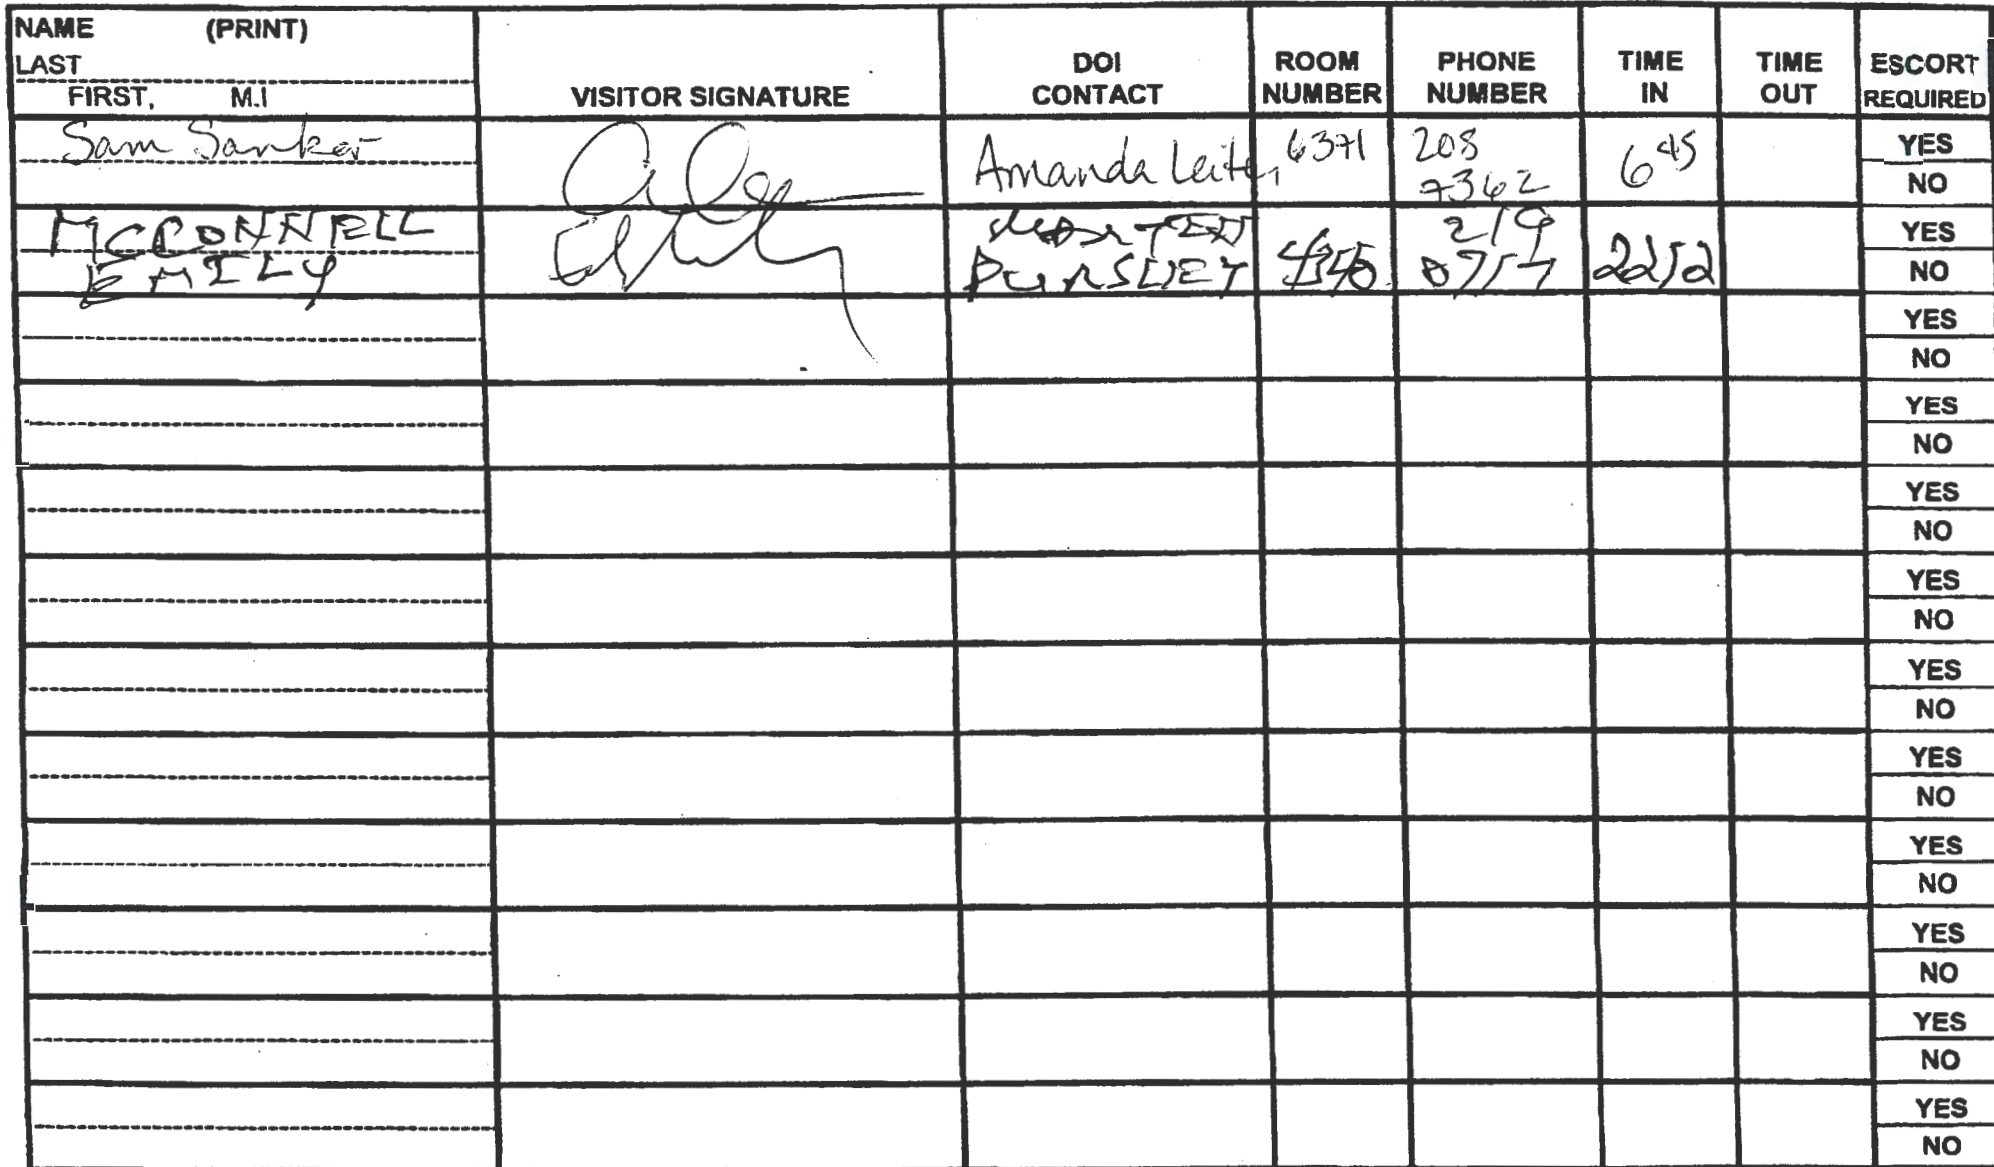 NAME (PRINT)
LAST
FIRST, M.I
VISITOR SIGNATURE
DOI
CONTACT
ROOM
NUMBER
PHONE
NUMBER
TIME
IN
TIME
OUT
ESCORT
REQUIRED
Sam Sankar
Amanda Leiter
6371
208
7362
6 45
YES
NO
MCCONNELL
EMILY
PURSLEY
219
0717
2212
YES
NO
YES
NO
YES
NO
YES
NO
YES
NO
YES
NO
YES
NO
YES
NO
YES
NO
YES
NO
YES
NO